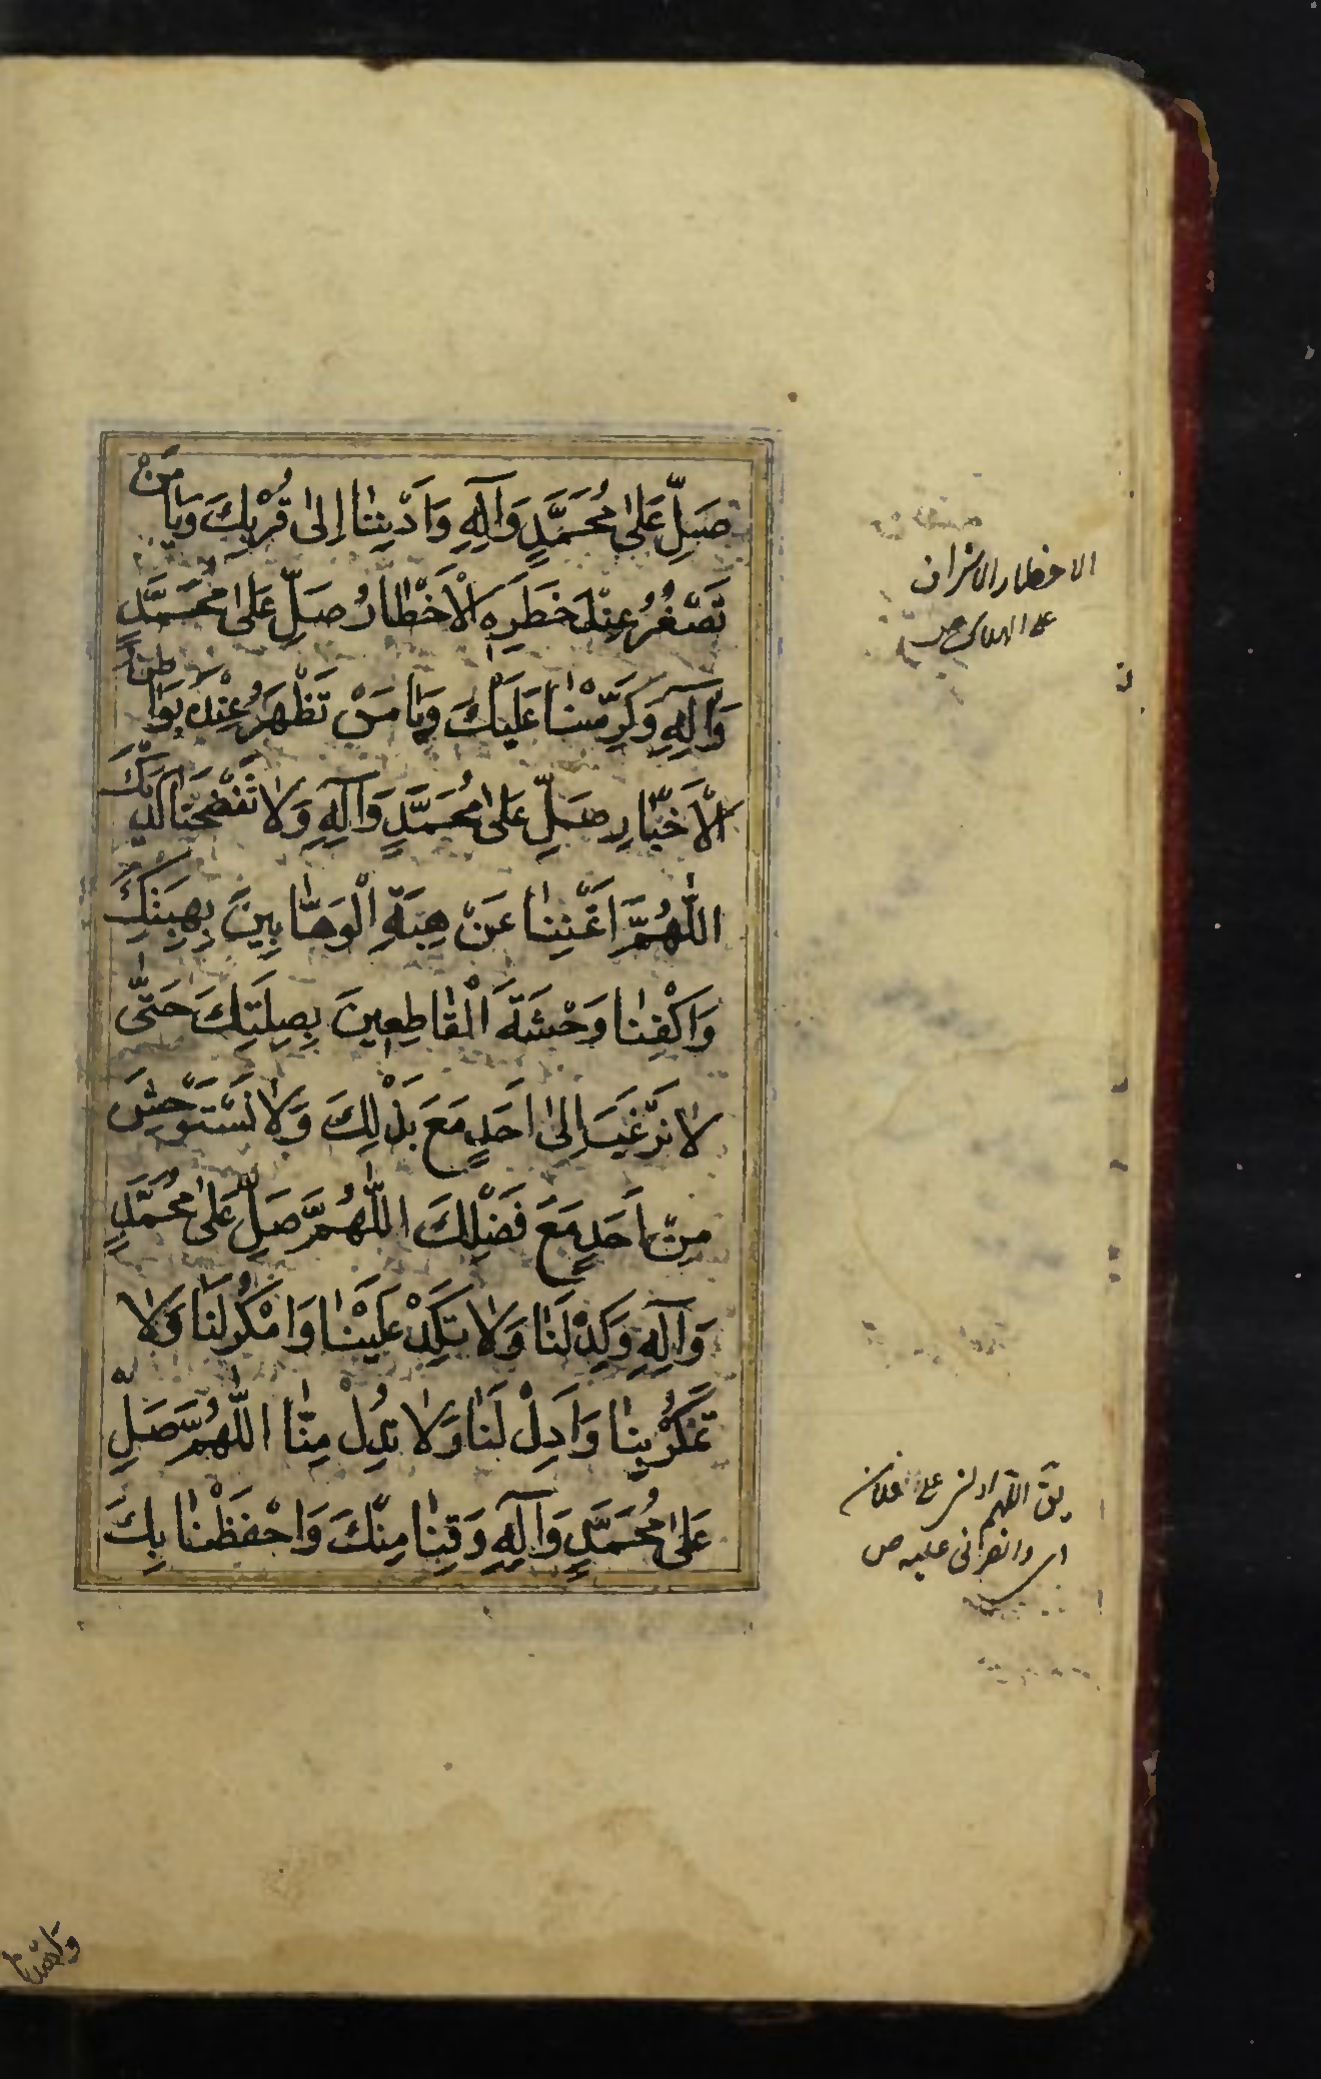 صَلِّ عَلٰى مُحَمَّدٍ وَاٰلِهِ وَاَدْنِنٰا اِلىٰ قُرْبِكَ وَيٰا مَنْ
تَصْغُرُ عِنْدَ خَطَرِهِ الْاَخْطٰارُ صَلِّ عَلٰى مُحَمَّدٍ
وَاٰلِهِ وَكَرِّمْنٰا عَلَيْكَ وَيٰا مَنْ تَظْهَرُ عِنْدَهُ بَوٰاطِنُ
الْاَخْبٰارِ صَلِّ عَلىٰ مُحَمَّدٍ وَاٰلِهِ وَلٰا تَفْضَحْنٰا لَدَيْكَ
اللّٰهُمَّ اَغْنِنٰا عَنْ هِبَةِ الْوَهّٰابِينَ بِهِبَتِكَ
وَاكْفِنٰا وَحْشَةَ الْقٰاطِعِينَ بِصِلَتِكَ حَتّٰى
لٰا نَرْغَبَ اِلىٰ اَحَدٍ مَعَ بَذْلِكَ وَلٰا نَسْتَوْحِشَ
مِنْ اَحَدٍ مَعَ فَضْلِكَ اللّٰهُمَّ صَلِّ عَلىٰ مُحَمَّدٍ
وَاٰلِهِ وَكِدْ لَنٰا وَلٰا تَكِدْ عَلَيْنٰا وَامْكُرْ لَنٰا وَلٰا
تَمْكُرْ بِنٰا وَاَدِلْ لَنٰا وَلٰا تُدِلْ مِنّٰا اللّٰهُمَّ صَلِّ
عَلىٰ مُحَمَّدٍ وَاٰلِهِ وَقِنٰا مِنْكَ وَاحْفَظْنٰا بِكَ
الاخطار الاشراف
على
يق اللهم ادلنى على فلان
اى وانصرنى عليه ص